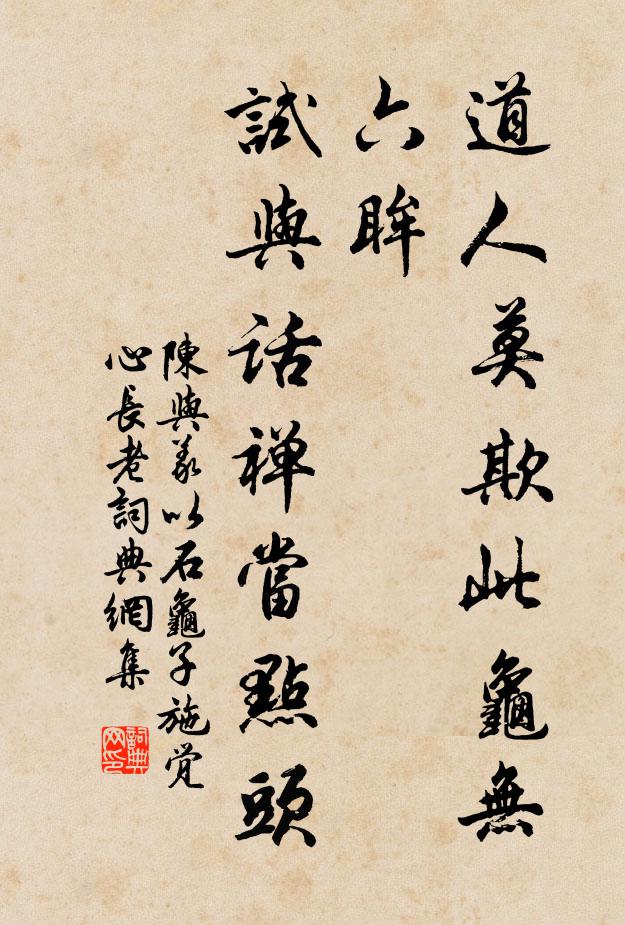 道人莫欺此龜無
六眸
試與話禅當點頭
陳與義以石龜子施觉
心長老詞典網集
詞典
网印